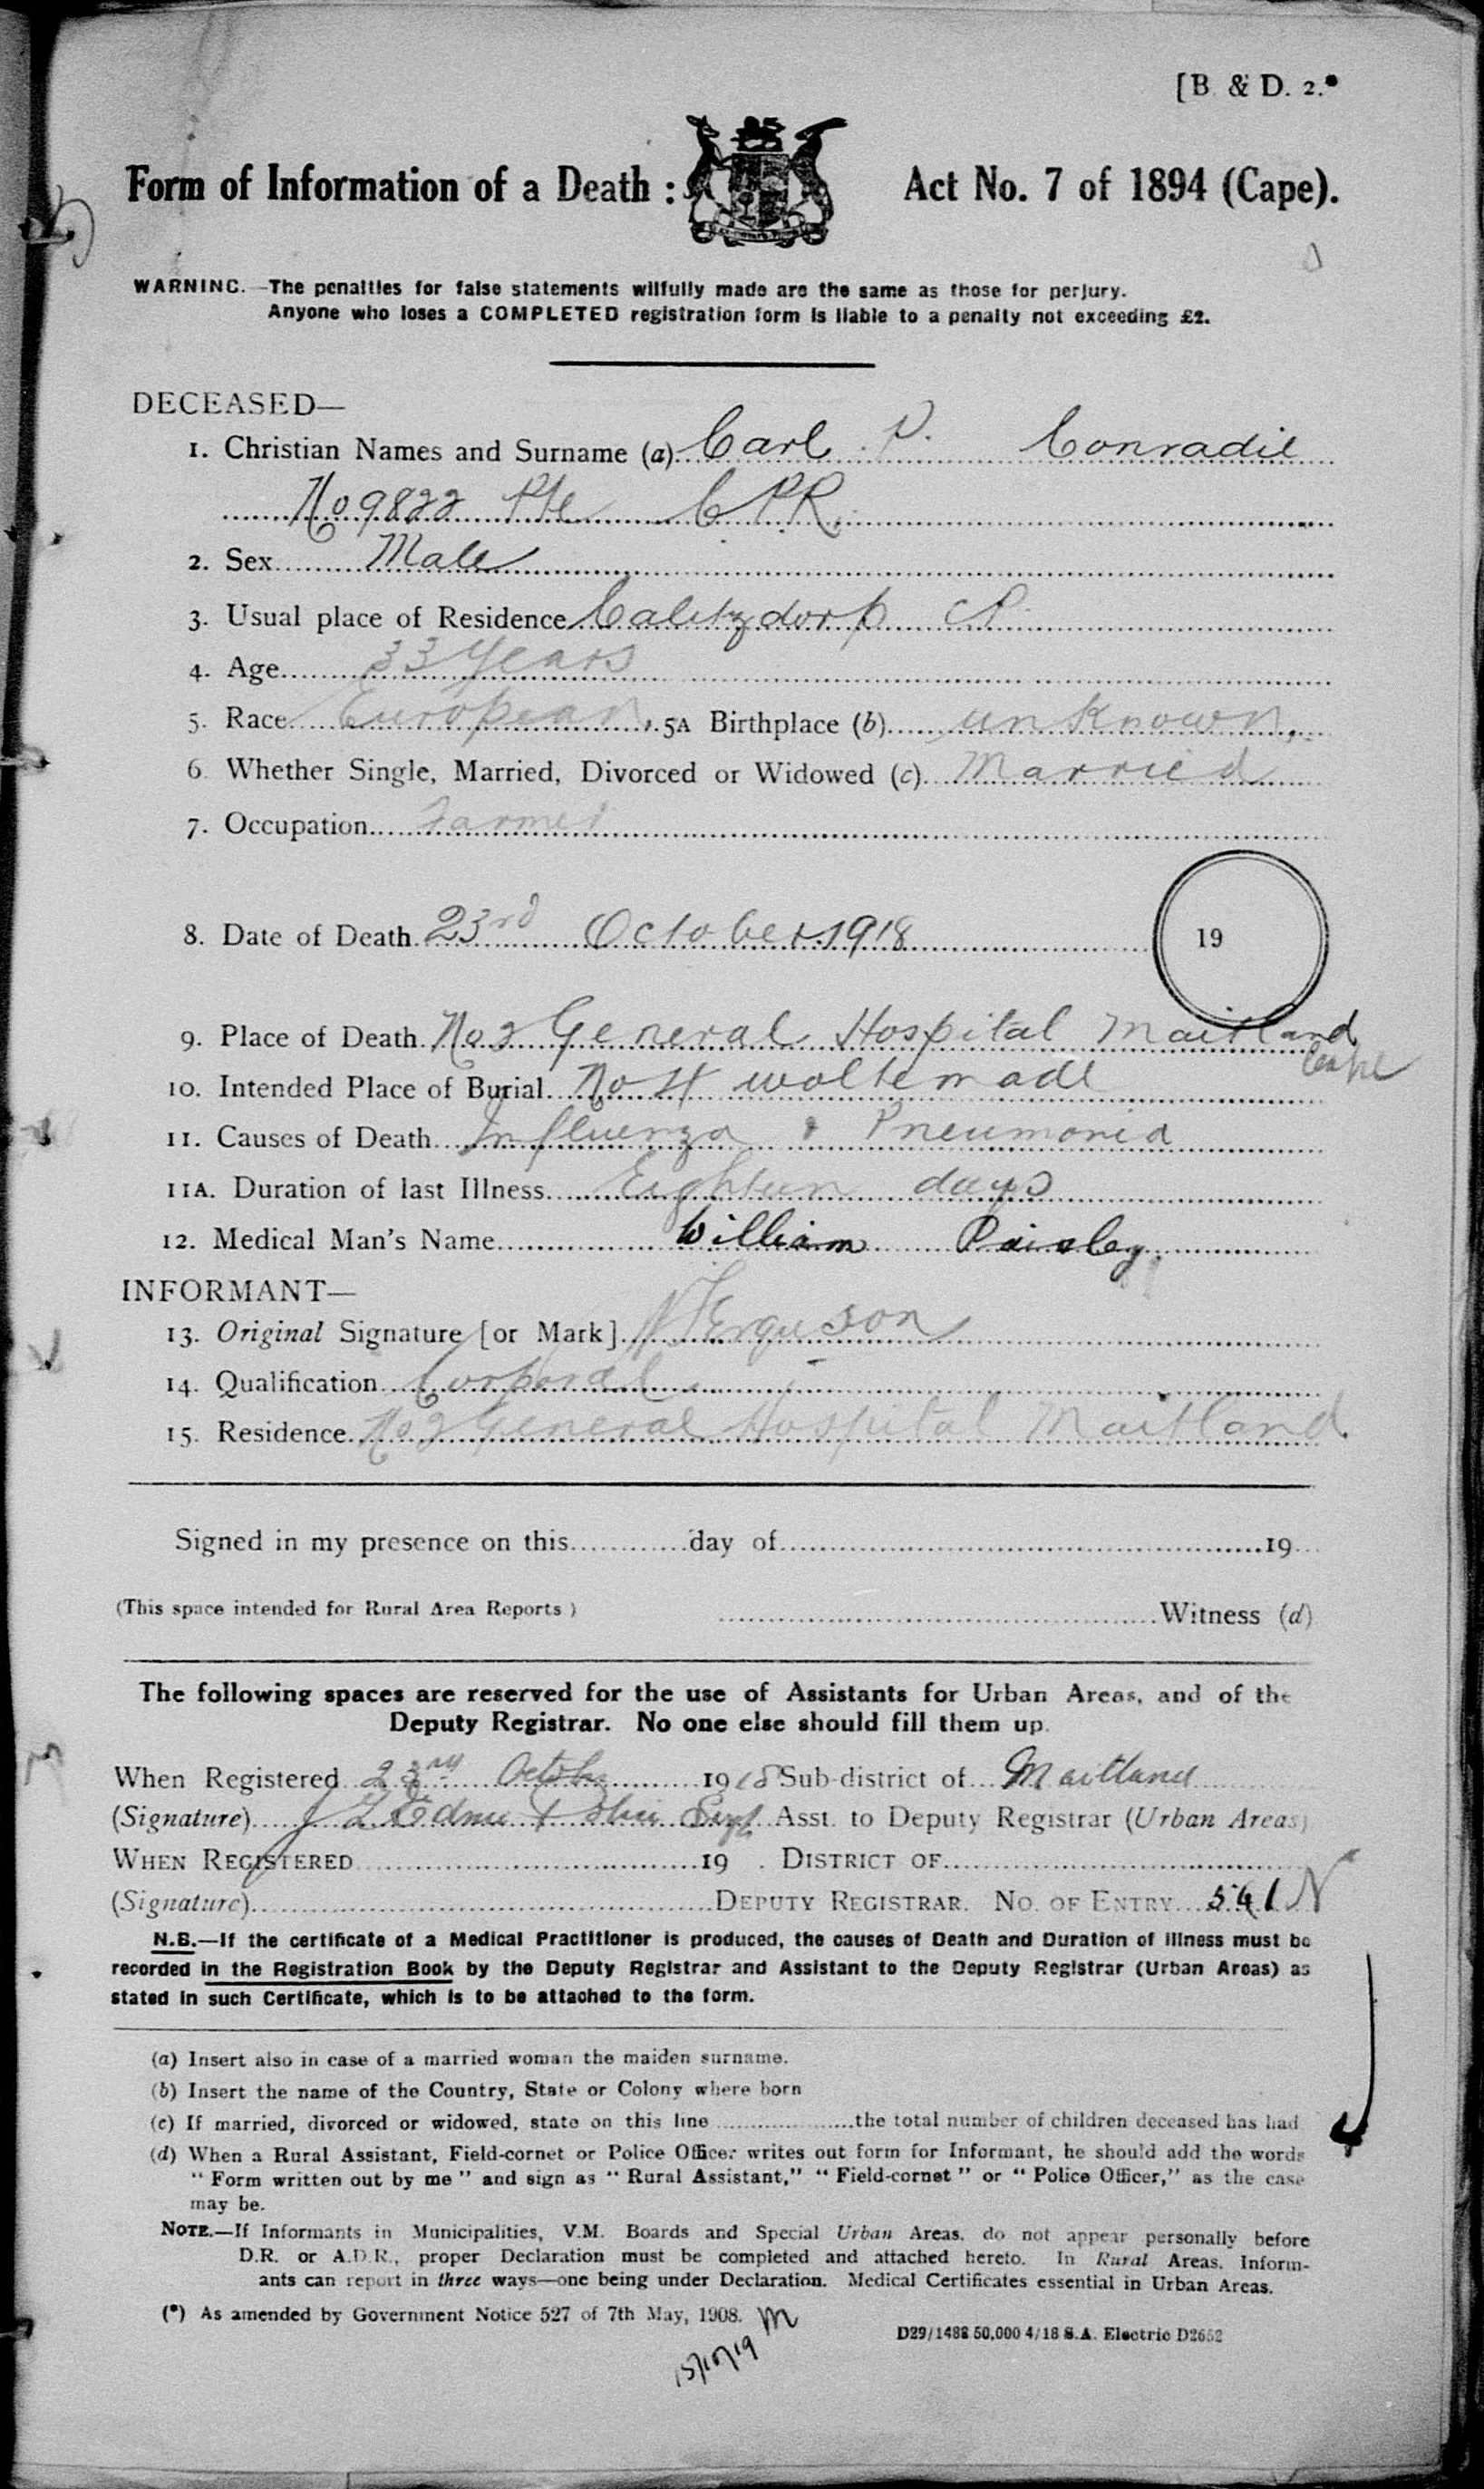 [B. & D. 2.*
Form of Information of a Death : Act No. 7 of 1894 (Cape).
WARNING.—The penalties for false statements wilfully made are the same as those for perjury.
Anyone who loses a COMPLETED registration form is liable to a penalty not exceeding £2.
DECEASED—
1. Christian Names and Surname (a) Carl P. Conradie
No 9822 Pte C P R.
2. Sex Male
3. Usual place of Residence Calitzdorp CP.
4. Age 33 Years
5. Race European. 5A Birthplace (b) unknown.
6. Whether Single, Married, Divorced or Widowed (c) Married
7. Occupation Farmer
8. Date of Death 23rd October 1918
19
9. Place of Death No 2 General Hospital Maitland
Cape
10. Intended Place of Burial No 4 woltemade
11. Causes of Death Influenza & Pneumonia
11A. Duration of last Illness Eighteen days
12. Medical Man's Name William Paisley.
INFORMANT—
13. Original Signature [or Mark] Ferguson
14. Qualification Corporal
15. Residence No 2 General Hospital Maitland
Signed in my presence on this day of 19
(This space intended for Rural Area Reports.) Witness (d)
The following spaces are reserved for the use of Assistants for Urban Areas, and of the
Deputy Registrar. No one else should fill them up.
When Registered 23rd October 1918 Sub-district of Maitland
(Signature) Asst. to Deputy Registrar (Urban Areas)
WHEN REGISTERED 19 . DISTRICT OF
(Signature) DEPUTY REGISTRAR. NO. OF ENTRY 541 N
N.B.—If the certificate of a Medical Practitioner is produced, the causes of Death and Duration of Illness must be
recorded in the Registration Book by the Deputy Registrar and Assistant to the Deputy Registrar (Urban Areas) as
stated in such Certificate, which is to be attached to the form.
(a) Insert also in case of a married woman the maiden surname.
(b) Insert the name of the Country, State or Colony where born
(c) If married, divorced or widowed, state on this line the total number of children deceased has had.
(d) When a Rural Assistant, Field-cornet or Police Officer writes out form for Informant, he should add the words
“ Form written out by me ” and sign as “ Rural Assistant,” “ Field-cornet ” or “ Police Officer,” as the case
may be.
NOTE.—If Informants in Municipalities, V.M. Boards and Special Urban Areas, do not appear personally before
D.R. or A.D.R., proper Declaration must be completed and attached hereto. In Rural Areas, Inform-
ants can report in three ways—one being under Declaration. Medical Certificates essential in Urban Areas.
(*) As amended by Government Notice 527 of 7th May, 1908. m
D29/1488 50,000 4/18 S.A. Electric D2652
15/10/19